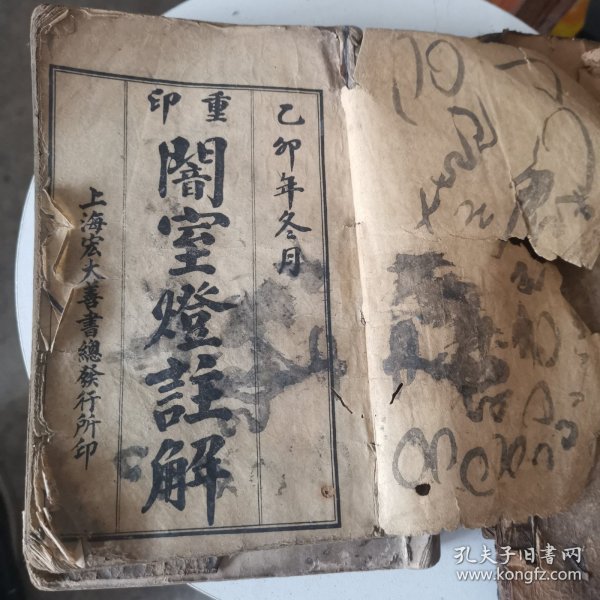 乙卯年冬月
重印
闇室燈註解
上海宏大善書總發行所印
孔夫子旧書网
www.kongfz.com